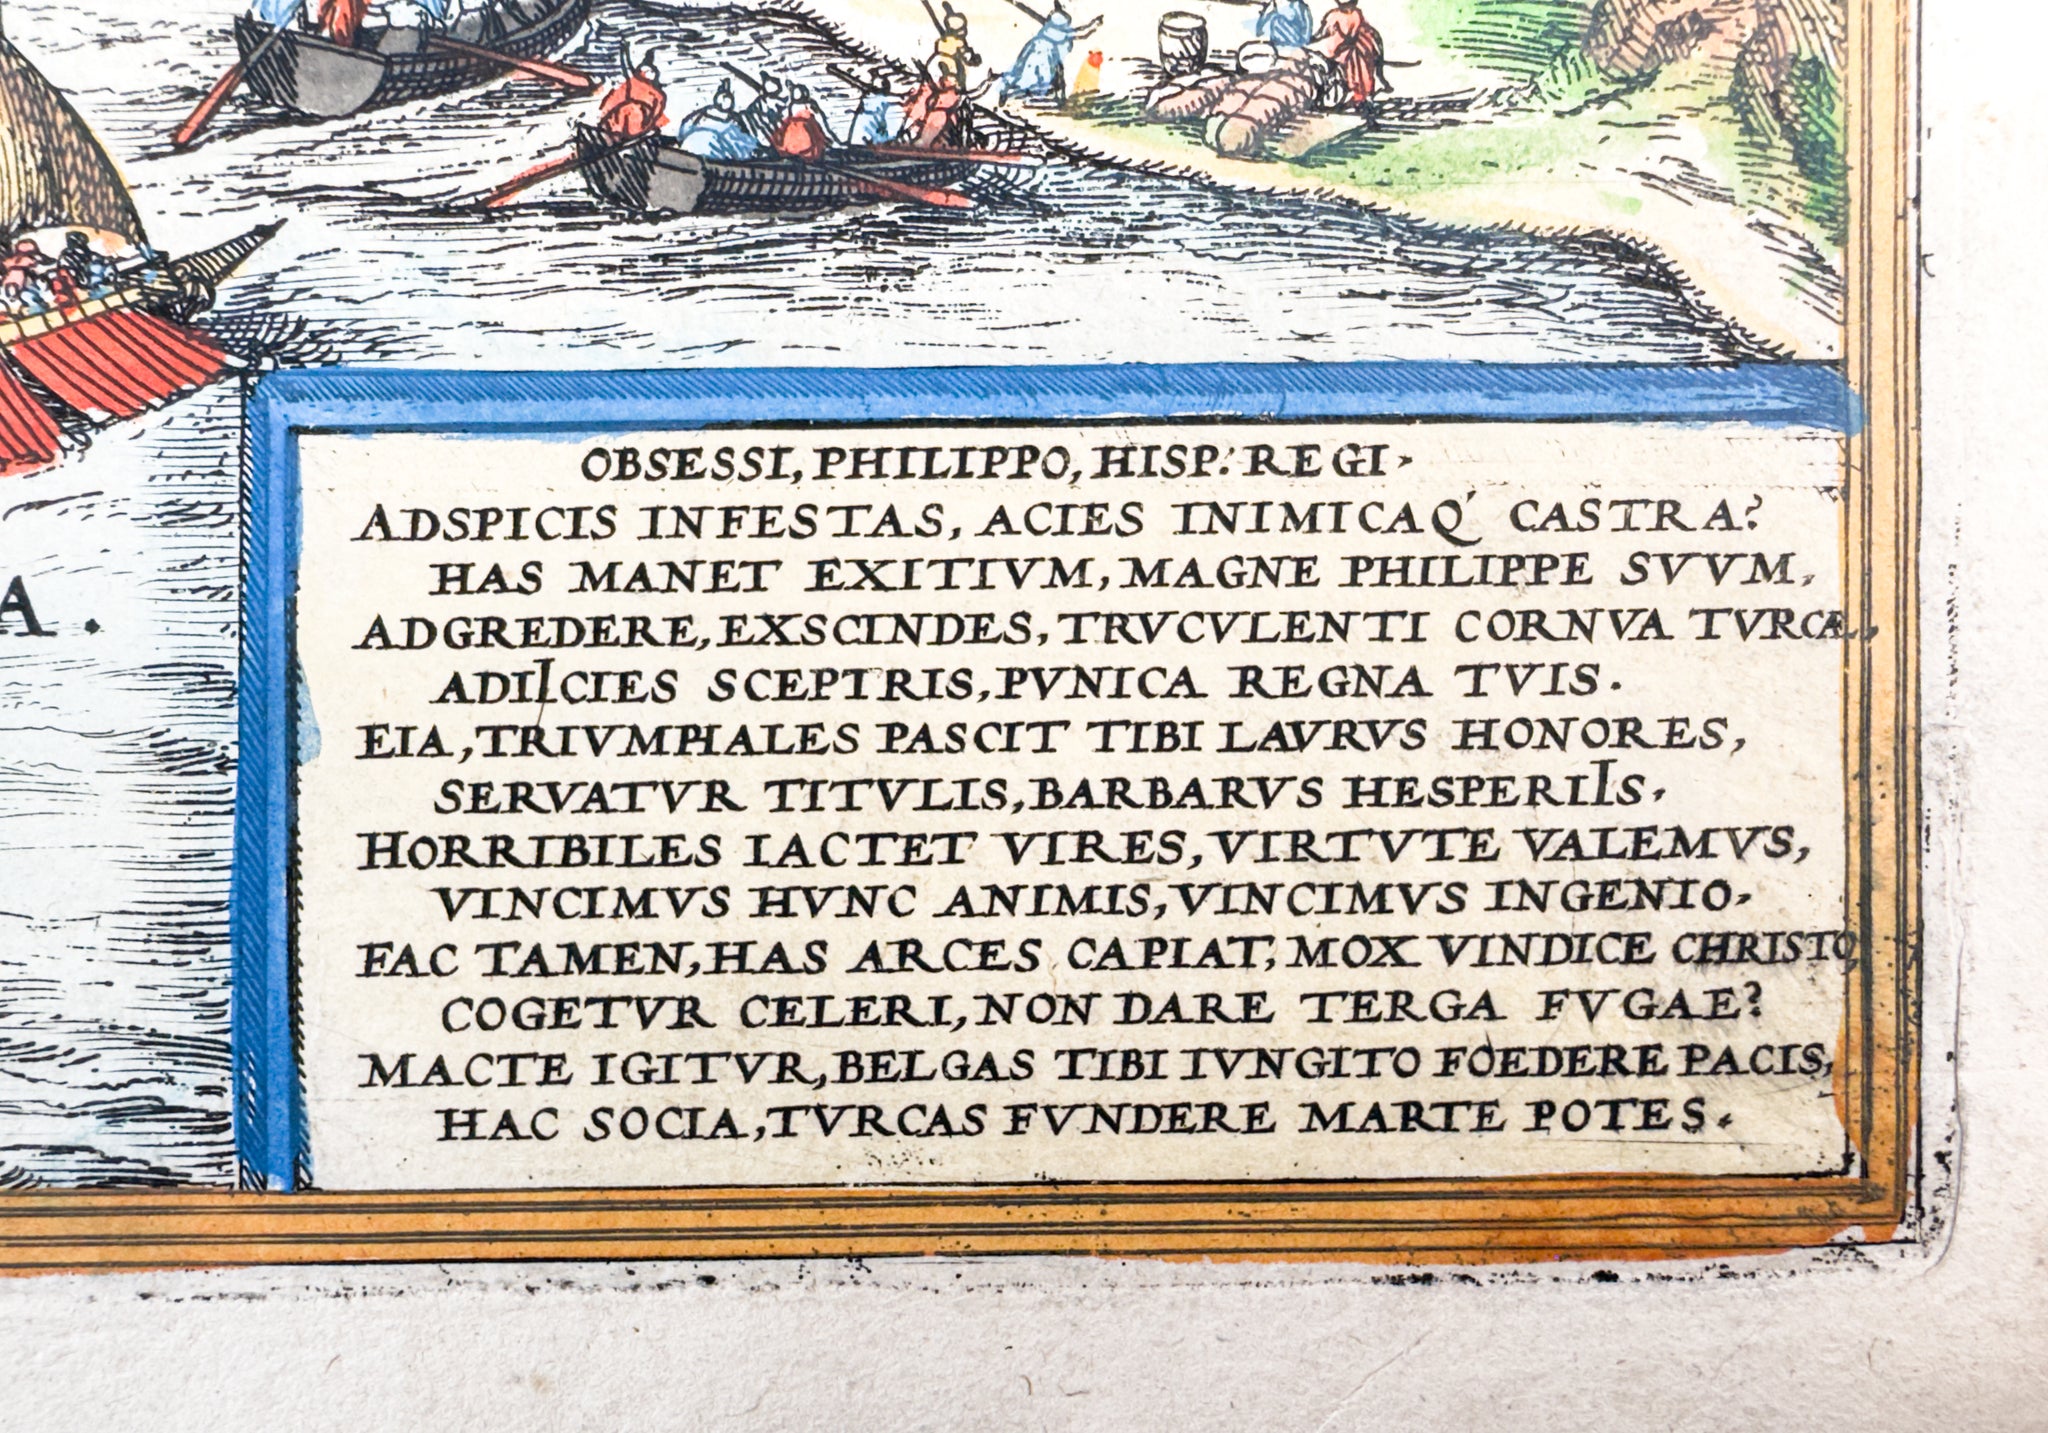 OBSESSI, PHILIPPO, HISP: REGI.
ADSPICIS INFESTAS, ACIES INIMICAQ' CASTRA?
HAS MANET EXITIVM, MAGNE PHILIPPE SVVM,
ADGREDERE, EXSCINDES, TRVCVLENTI CORNVA TVRCÆ,
ADIICIES SCEPTRIS, PVNICA REGNA TVIS.
EIA, TRIVMPHALES PASCIT TIBI LAVRVS HONORES,
SERVATVR TITVLIS, BARBARVS HESPERIIS.
HORRIBILES IACTET VIRES, VIRTVTE VALEMVS,
VINCIMVS HVNC ANIMIS, VINCIMVS INGENIO.
FAC TAMEN, HAS ARCES CAPIAT, MOX VINDICE CHRISTO,
COGETVR CELERI, NON DARE TERGA FVGAE?
MACTE IGITVR, BELGAS TIBI IVNGITO FOEDERE PACIS,
HAC SOCIA, TVRCAS FVNDERE MARTE POTES.
A.